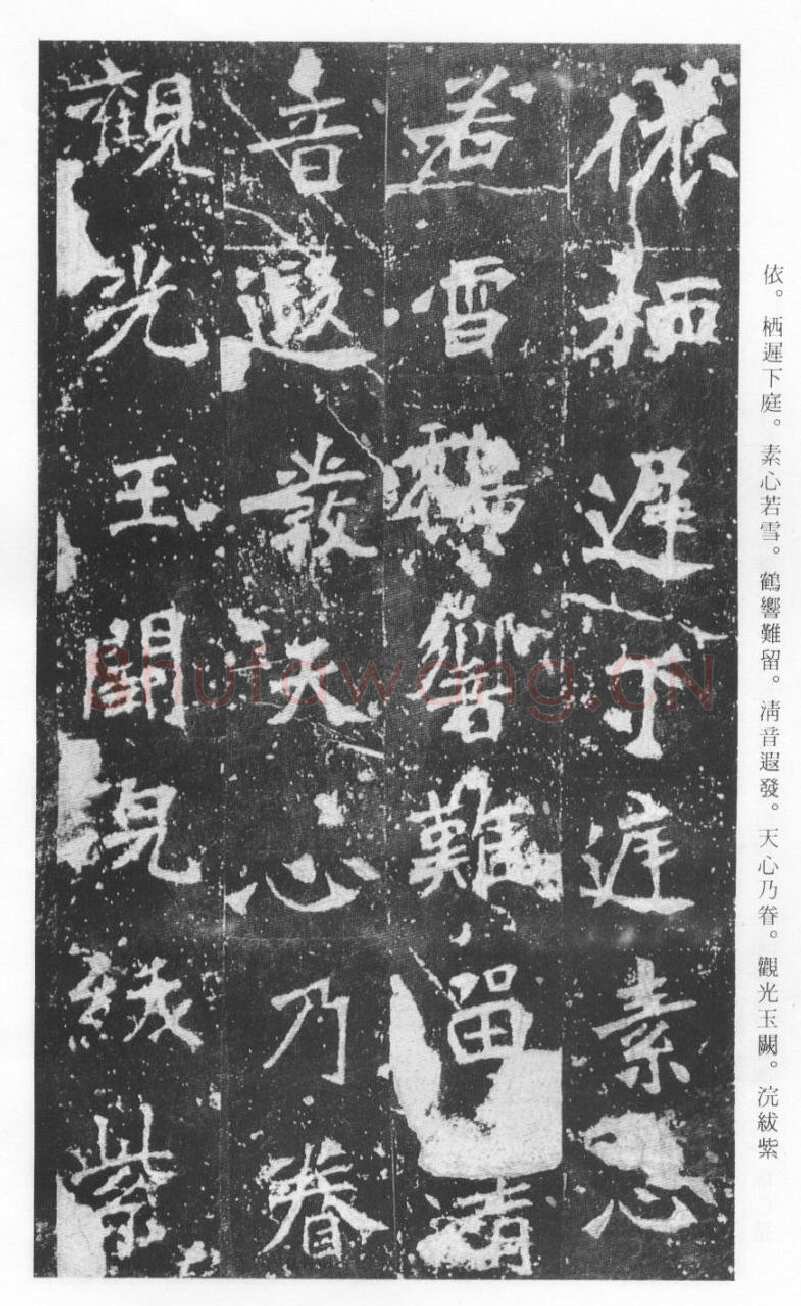 依。栖遲下庭。素心若雪。鶴響難留。淸音遐發。天心乃眷。觀光玉闕。浣紱紫
依栖遲下庭素心
若雪鶴響難留清
音遐發天心乃眷
觀光玉闕浣紱紫
Shufawang.CN